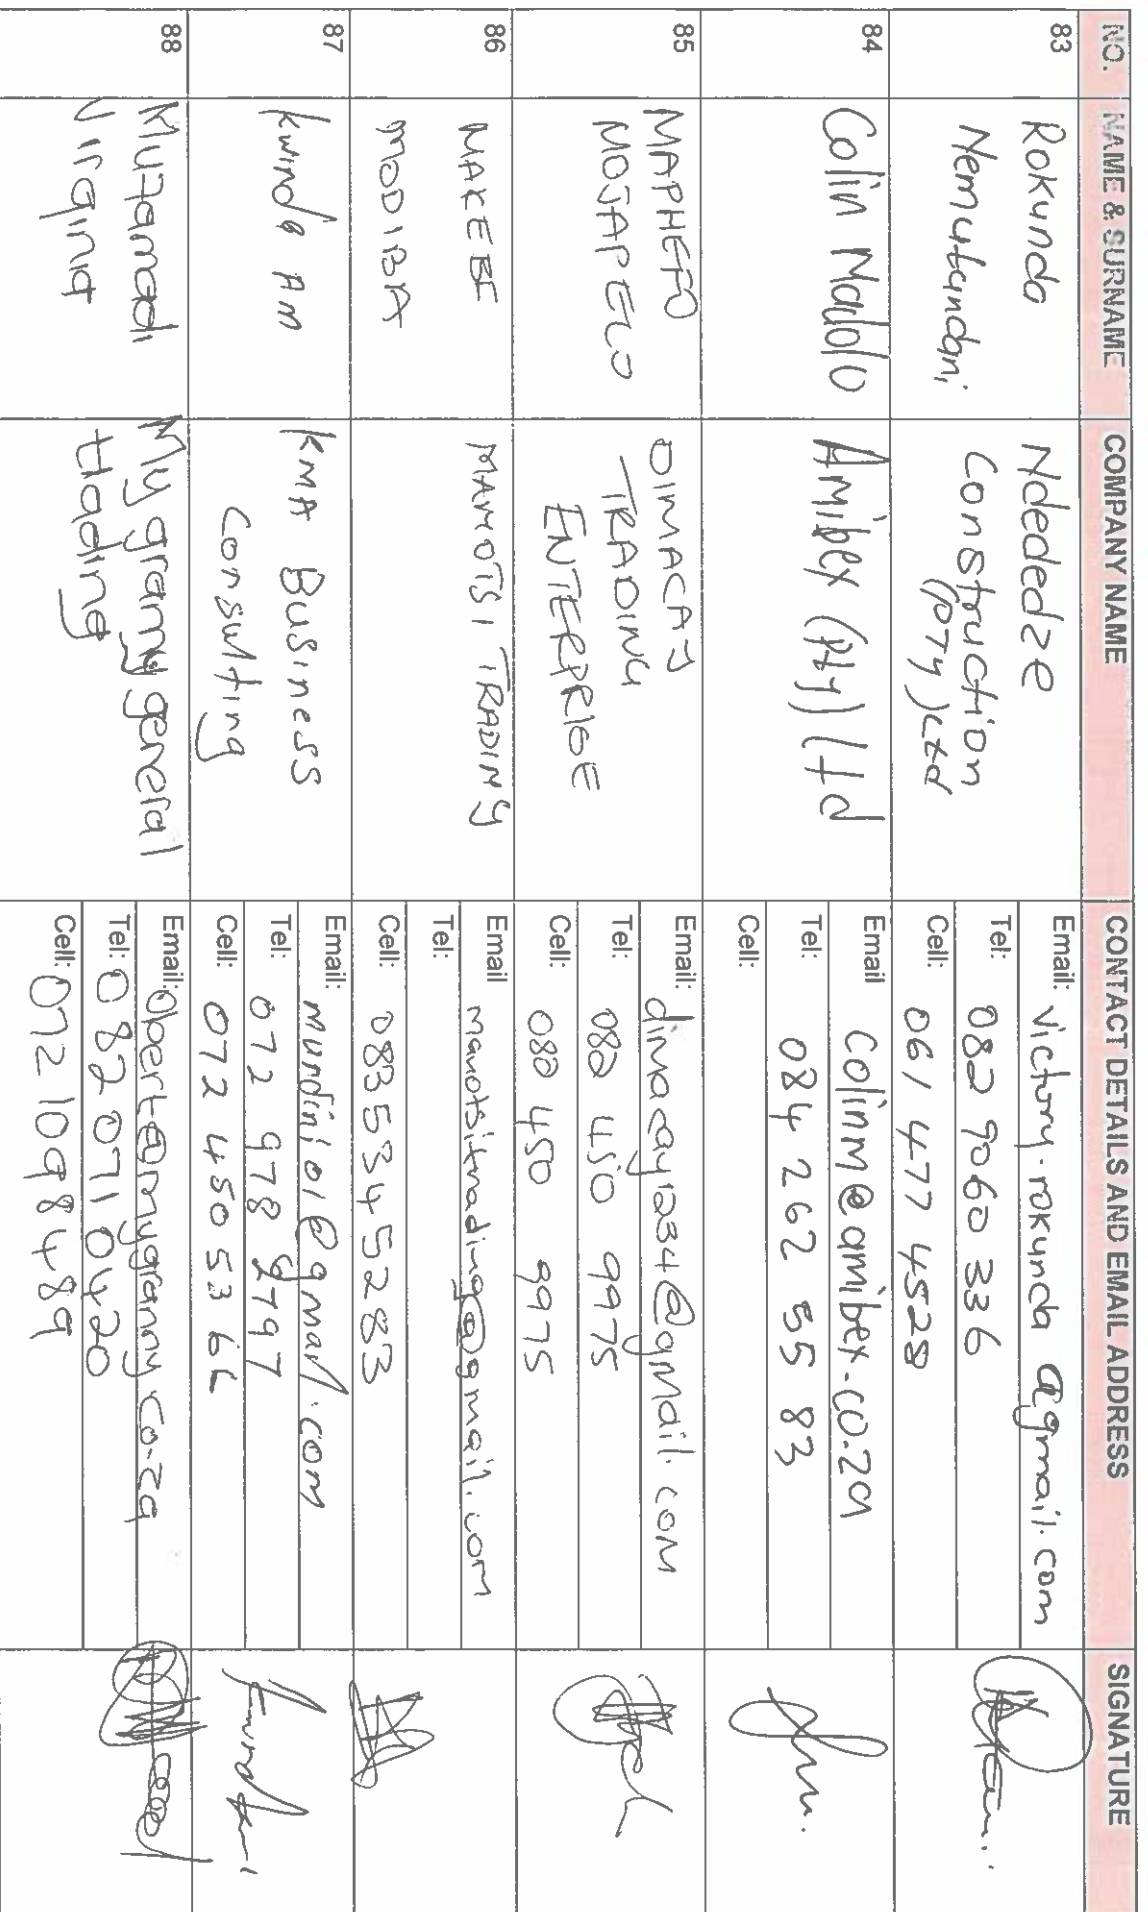 NO. NAME & SURNAME COMPANY NAME CONTACT DETAILS AND EMAIL ADDRESS SIGNATURE
83
Rokunda
Nemutandani
Ndededze
Construction
(PTY) Ltd
Email: victory.rokunda@gmail.com
Tel: 082 9060 336
Cell: 061 477 4528
84
Colin Madolo
Amibex (Pty) Ltd
Email Colinm@amibex.co.za
Tel: 084 262 55 83
Cell:
85
MAPHEFO
MOJAPELO
DIMACAJ
TRADING
ENTERPRISE
Email: dimacay1234@gmail.com
Tel: 082 450 9975
Cell: 082 450 9975
86
MAKEBE
MODIBA
MAMOTSI TRADING
Email mamotsitrading@gmail.com
Tel:
Cell: 083 534 5283
87
Kwinda AM
KMA Business
Consulting
Email: mundini01@gmail.com
Tel: 072 978 9797
Cell: 072 450 53 66
88
Mutamadi
Virginia
My granny general
trading
Email: obert@mygranny.co.za
Tel: 082 071 0420
Cell: 072 109 8489